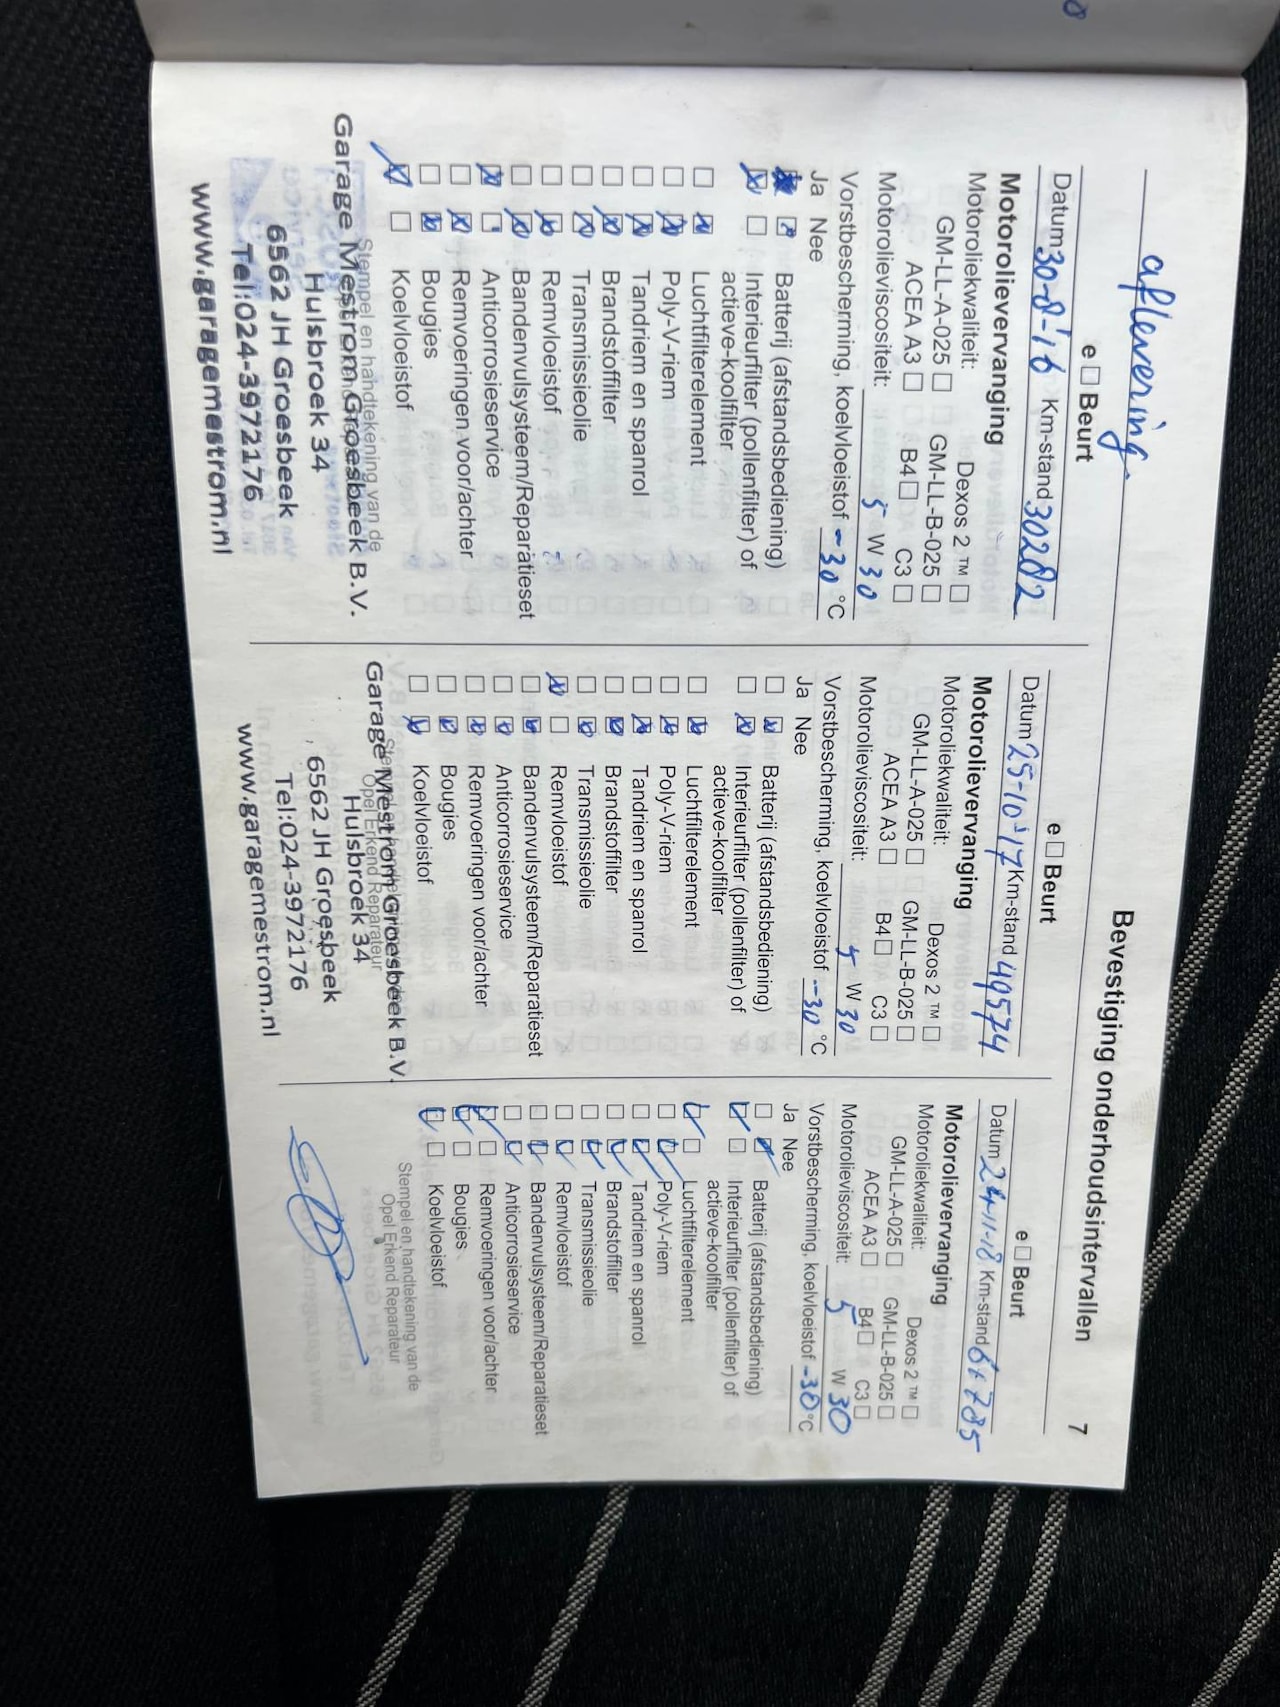 Bevestiging onderhoudsintervallen 7
aflevering
e □ Beurt
Datum 30-8-'16 Km-stand 30282
Motorolievervanging
Motoroliekwaliteit: Dexos 2 ™ □
GM-LL-A-025 □ GM-LL-B-025 □
ACEA A3 □ B4 □ C3 □
Motorolieviscositeit: 5 W 30
Vorstbescherming, koelvloeistof -30 °C
Ja Nee
Batterij (afstandsbediening)
Interieurfilter (pollenfilter) of
actieve-koolfilter
Luchtfilterelement
Poly-V-riem
Tandriem en spanrol
Brandstoffilter
Transmissieolie
Remvloeistof
Bandenvulsysteem/Reparatieset
Anticorrosieservice
Remvoeringen voor/achter
Bougies
Koelvloeistof
Stempel en handtekening van de
Garage Mestrom Groesbeek B.V.
Hulsbroek 34
6562 JH Groesbeek
Tel:024-3972176
www.garagemestrom.nl
e □ Beurt
Datum 25-10-'17 Km-stand 49574
Motorolievervanging
Motoroliekwaliteit: Dexos 2 ™ □
GM-LL-A-025 □ GM-LL-B-025 □
ACEA A3 □ B4 □ C3 □
Motorolieviscositeit: 5 W 30
Vorstbescherming, koelvloeistof -30 °C
Ja Nee
Batterij (afstandsbediening)
Interieurfilter (pollenfilter) of
actieve-koolfilter
Luchtfilterelement
Poly-V-riem
Tandriem en spanrol
Brandstoffilter
Transmissieolie
Remvloeistof
Bandenvulsysteem/Reparatieset
Anticorrosieservice
Remvoeringen voor/achter
Bougies
Koelvloeistof
Garage Mestrom Groesbeek B.V.
Opel Erkend Reparateur
Hulsbroek 34
6562 JH Groesbeek
Tel:024-3972176
www.garagemestrom.nl
e □ Beurt
Datum 24-11-18 Km-stand
Motorolievervanging
Motoroliekwaliteit: Dexos 2 ™ □
GM-LL-A-025 □ GM-LL-B-025 □
ACEA A3 □ B4 □ C3 □
Motorolieviscositeit: 5 W 30
Vorstbescherming, koelvloeistof -30 °C
Ja Nee
Batterij (afstandsbediening)
Interieurfilter (pollenfilter) of
actieve-koolfilter
Luchtfilterelement
Poly-V-riem
Tandriem en spanrol
Brandstoffilter
Transmissieolie
Remvloeistof
Bandenvulsysteem/Reparatieset
Anticorrosieservice
Remvoeringen voor/achter
Bougies
Koelvloeistof
Stempel en handtekening van de
Opel Erkend Reparateur